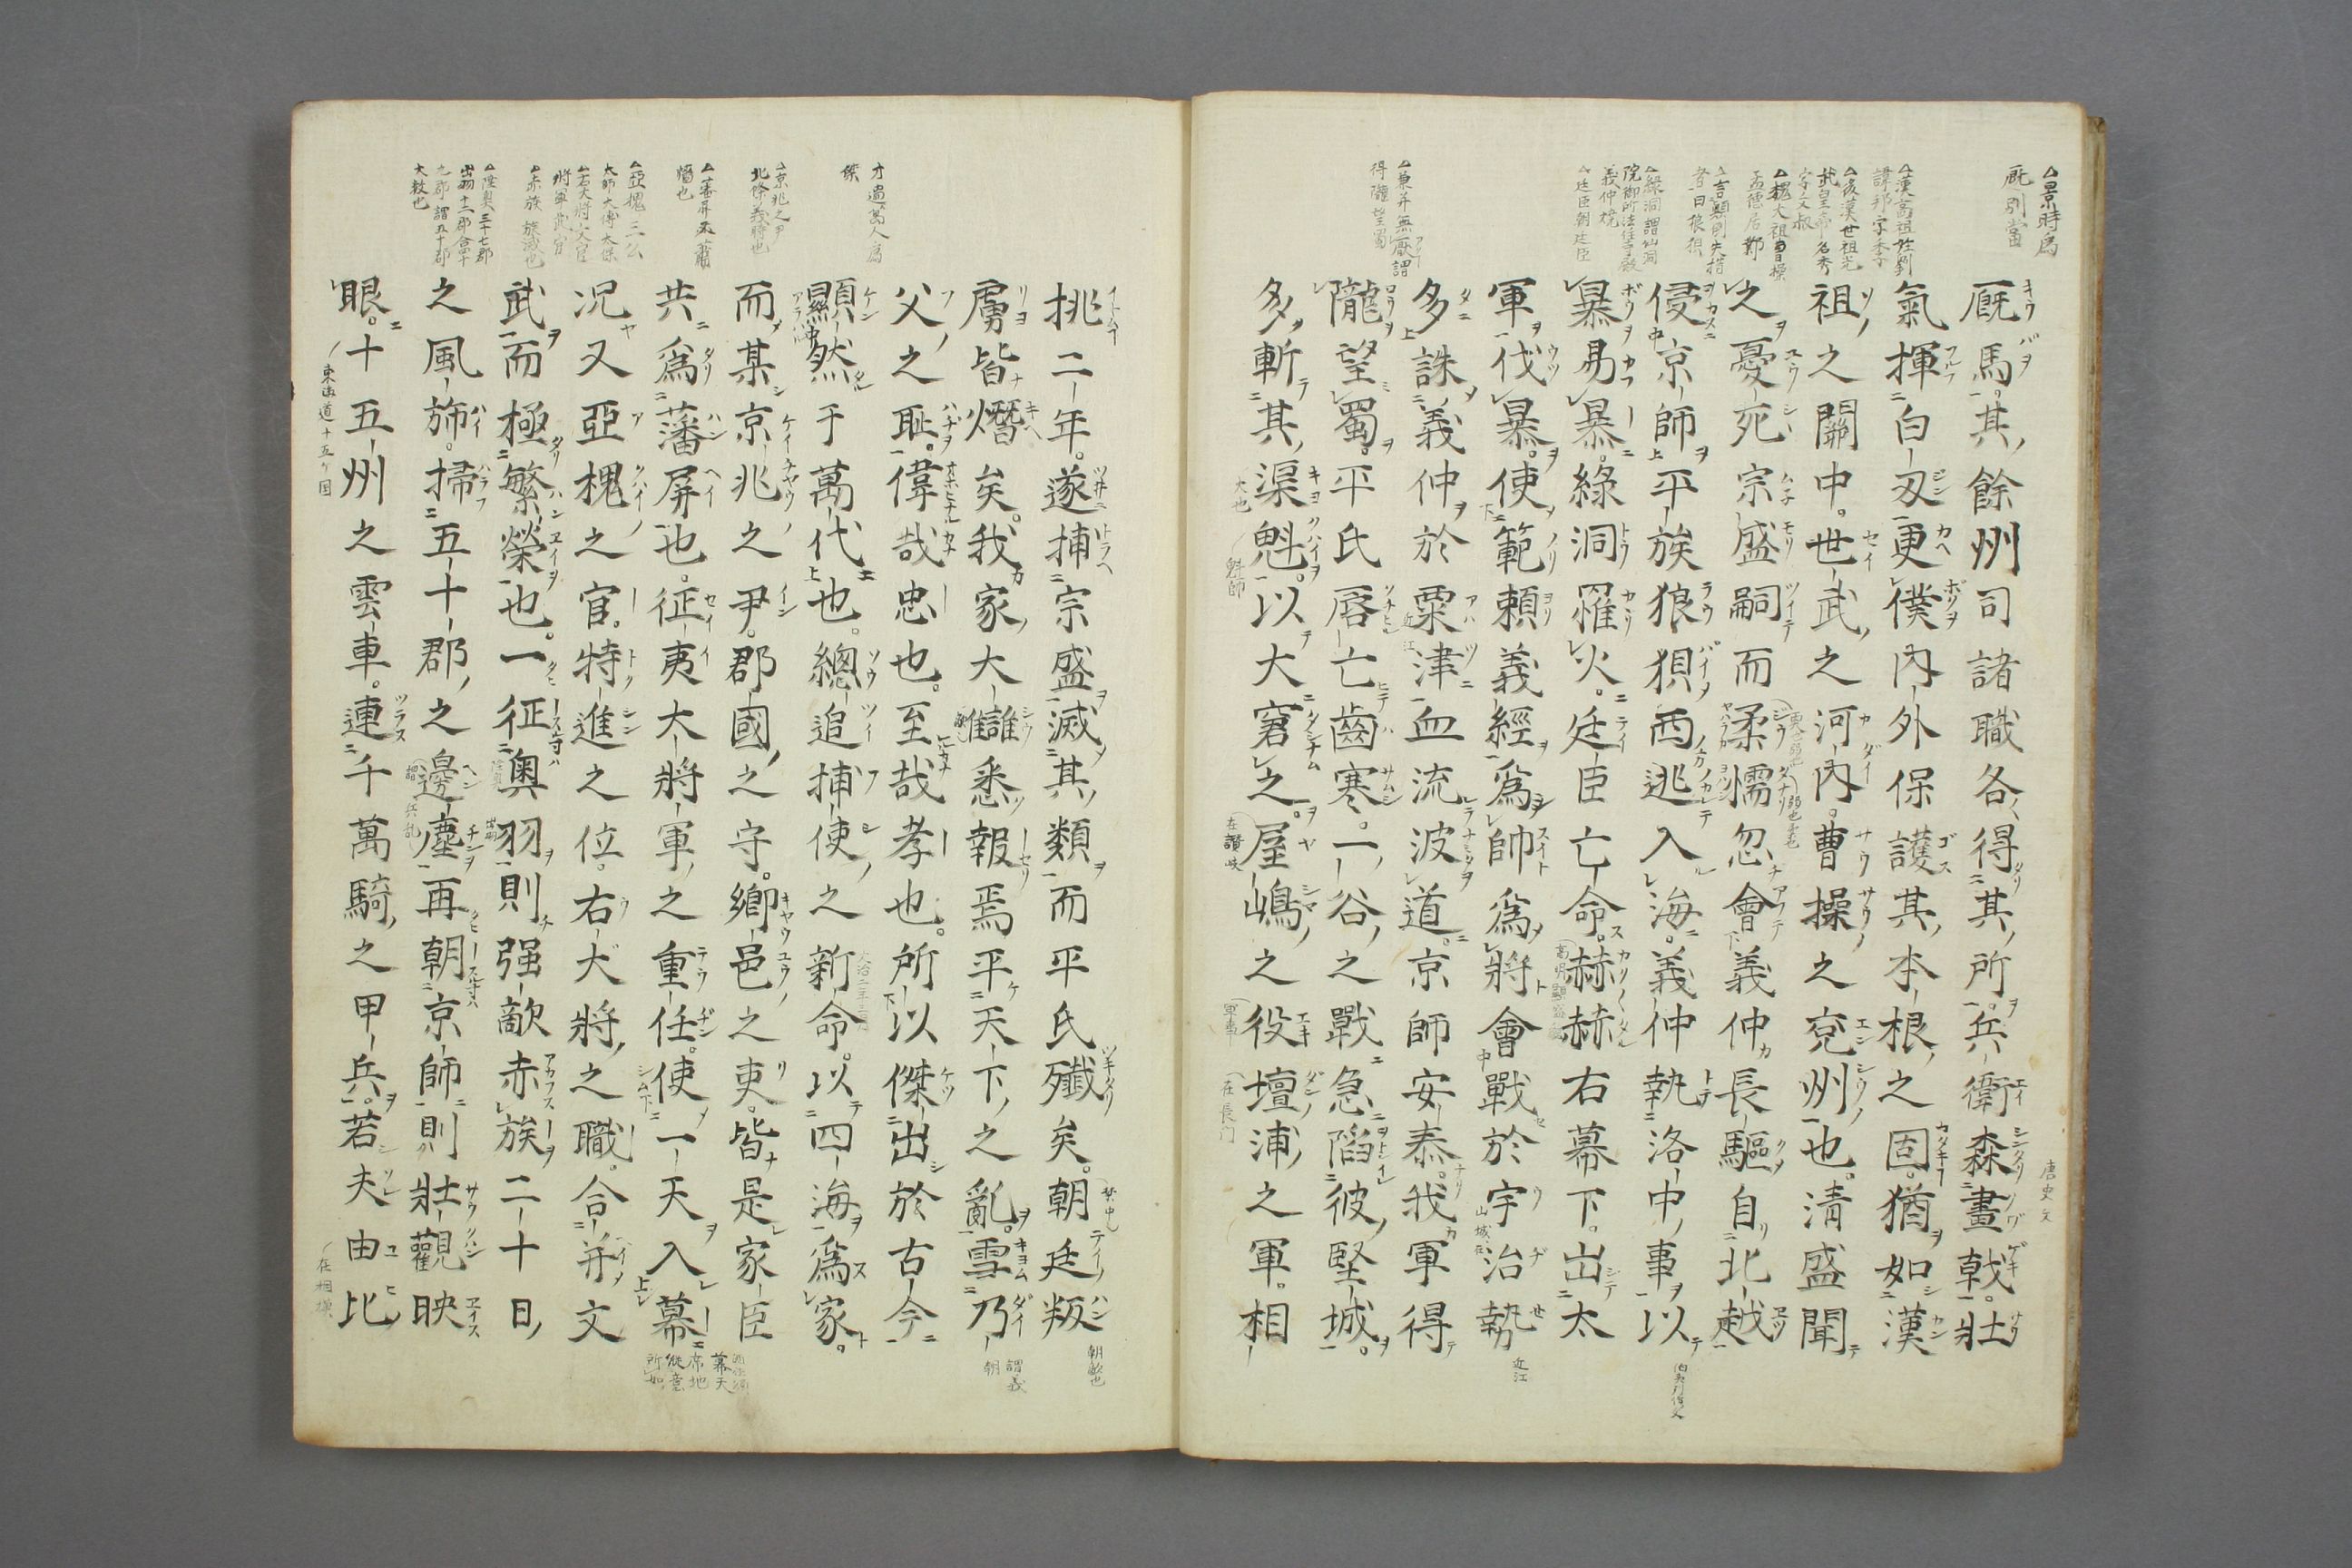 厩馬其餘州司諸職各得其所兵衛森畫戟壯
氣揮白刃更僕內外保護其本根之固猶如漢
祖之關中世武之河內曹操之兗州也清盛聞
之憂死宗盛嗣而柔懦忽會義仲長驅自北越
侵京師平族狼狽西逃入海義仲執洛中事以
暴易暴綠洞罹火廷臣亡命赫赫右幕下出太
軍伐暴使範賴義經爲帥爲將會戰於宇治勢
多誅義仲於粟津血流波道京師安泰我軍得
隴望蜀平氏唇亡齒寒一谷之戰急陷彼堅城
多斬其渠魁以大窘之屋嶋之役壇浦之軍相
挑二年遂捕宗盛滅其類而平氏殲矣朝廷叛
虜皆熸矣我家大讎悉報焉平天下之亂雪乃
父之耻偉哉忠也至哉孝也所以傑出於古今
顯然于萬代也總追捕使之新命以四海爲家
而某京兆之尹郡國之守鄉邑之吏皆是家臣
共爲藩屏也征夷大將軍之重任使一天入幕
況又亞槐之官特進之位右大將之職合并文
武而極繁榮也一征奧羽則强敵赤族二十日
之風旆掃五十郡之邊塵再朝京師則壯觀映
眼十五州之雲車連千萬騎之甲兵若夫由比
△景時爲
厩別當
△漢高祖姓劉
諱邦字季
△後漢世祖光
武皇帝名秀
字文叔
△魏大祖曹操
孟德居鄴
△言顛倒失措
者曰狼狽
△綠洞謂仙洞
院御所法住寺殿
義仲燒
△廷臣朝廷臣
△兼并無厭謂
得隴望蜀
才過萬人爲
傑
△京兆之尹
北條義時也
△亞槐三公
太師大傅太保
△右大將文官
將軍武官
△赤族族滅也
△陸奧三十七郡
出羽十二郡合四十
九郡謂五十郡
大數也
東海道十五ケ国
在相模